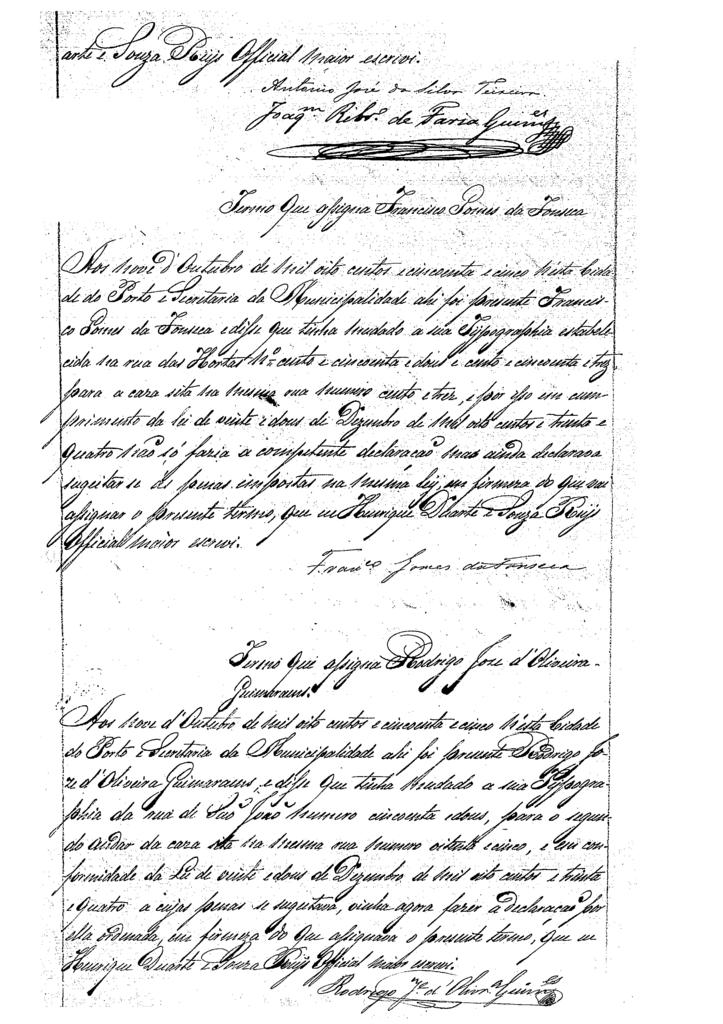 arte e Souza Reys Official maior escrivi.
Antonio José da Silva Teixeira
Joaqm. Ribro. de Faria Guimes
Termo que assigna Francisco Gomes da Fonseca
Aos nove d'Outubro de mil oito centos e cincoenta e cinco nésta Cida-
de do Porto e Secretaria da Municipalidade ahi foi presente Francis-
co Gomes da Fonseca e disse que tinha mudado a sua Typographia estabele-
cida na rua das Hortas Nos. cento e cincoenta e dous e cento e cincoenta e trez
para a caza sita na mesma rua numero cento e trez, e por isso em cum-
primento da lei de veinte e dous de Dezembro de mil oito centos e trinta e
quatro não só faria a competente declaração mas ainda declarava
sugeitar-se ás penas impostas na mesma ley, em firmeza do que vai
assignar o presente termo, que eu Henrique Duarte e Souza Reys
Official maior escrevi.
Franco. Gomes da Fonseca
Termo que assigna Rodrigo José d'Oliveira
Guimaraens.
Aos nove d'Outubro de mil oito centos e cincoenta e cinco n'ésta Cidade
do Porto e Secretaria da Municipalidade ahi foi presente Rodrigo Jo-
zé d'Oliveira Guimaraens, e disse que tinha mudado a sua Typogra-
phia da rua de São João numero cincoenta e dous, para o segun-
do andar da caza sita na mesma rua numero oitenta e cinco, e em con-
formidade da Lei de veinte e dous de Dezembro de mil oito centos e trinta
e quatro a cujas penas se sugeitava, vinha agora fazer a declaração por
ella ordenada, em firmeza do que assignava o presente termo, que eu
Henrique Duarte e Souza Reys Official maior escrivi.
Rodrigo Je. d'Olivra. Guimes